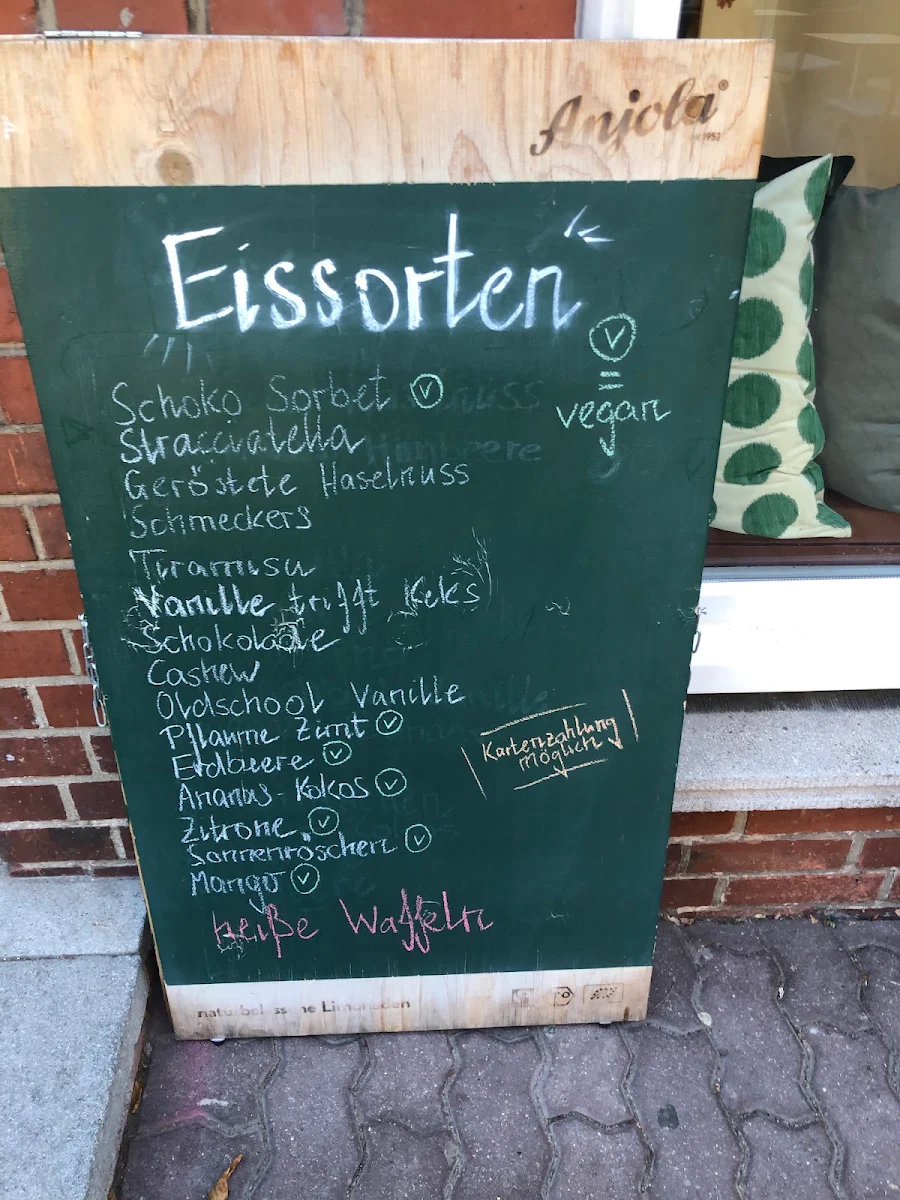 Anjola®
1952
Eissorten
Ⓥ
=
vegan
Schoko Sorbet Ⓥ
Stracciatella
Geröstete Haselnuss
Schmeckers
Tiramisu
Vanille trifft Keks
Schokolade
Cashew
Oldschool Vanille
Pflaume Zimt Ⓥ
Erdbeere Ⓥ
Ananas-Kokos Ⓥ
Zitrone Ⓥ
Sonnenröschen Ⓥ
Mango Ⓥ
Kartenzahlung
möglich
heiße Waffeln
naturbelassene Limonaden